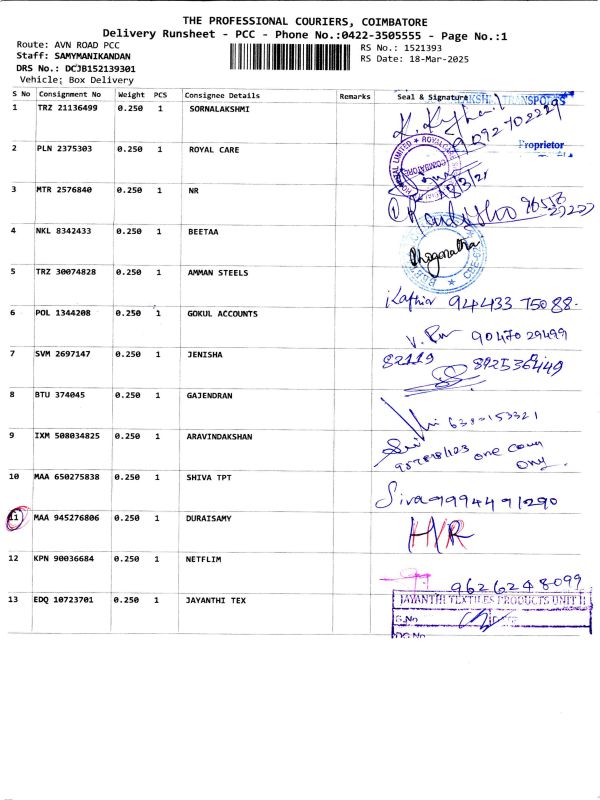 THE PROFESSIONAL COURIERS, COIMBATORE
Delivery Runsheet - PCC - Phone No.:0422-3505555 - Page No.:1
Route: AVN ROAD PCC
Staff: SAMYMANIKANDAN
DRS No.: DCJB152139301
Vehicle: Box Delivery
RS No.: 1521393
RS Date: 18-Mar-2025
S No Consignment No Weight PCS Consignee Details Remarks Seal & Signature
TRANSPORTS
1 TRZ 21136499 0.250 1 SORNALAKSHMI
9092702229
Proprietor
2 PLN 2375303 0.250 1 ROYAL CARE
HOSPITAL LIMITED ★ ROYALCARE
COIMBATORE
3 MTR 2576840 0.250 1 NR
4 NKL 8342433 0.250 1 BEETAA
5 TRZ 30074828 0.250 1 AMMAN STEELS
Kathior 94433 75088
6 POL 1344208 0.250 1 GOKUL ACCOUNTS
90470 29499
7 SVM 2697147 0.250 1 JENISHA
82119
8 BTU 374045 0.250 1 GAJENDRAN
9 IXM 508034825 0.250 1 ARAVINDAKSHAN
one
10 MAA 650275838 0.250 1 SHIVA TPT
Siva 9994491290
11 MAA 945276806 0.250 1 DURAISAMY
H/R
12 KPN 90036684 0.250 1 NETFLIM
9626248099
13 EDQ 10723701 0.250 1 JAYANTHI TEX
JAYANTHI TEXTILES PRODUCTS UNIT II
S.No
DC No